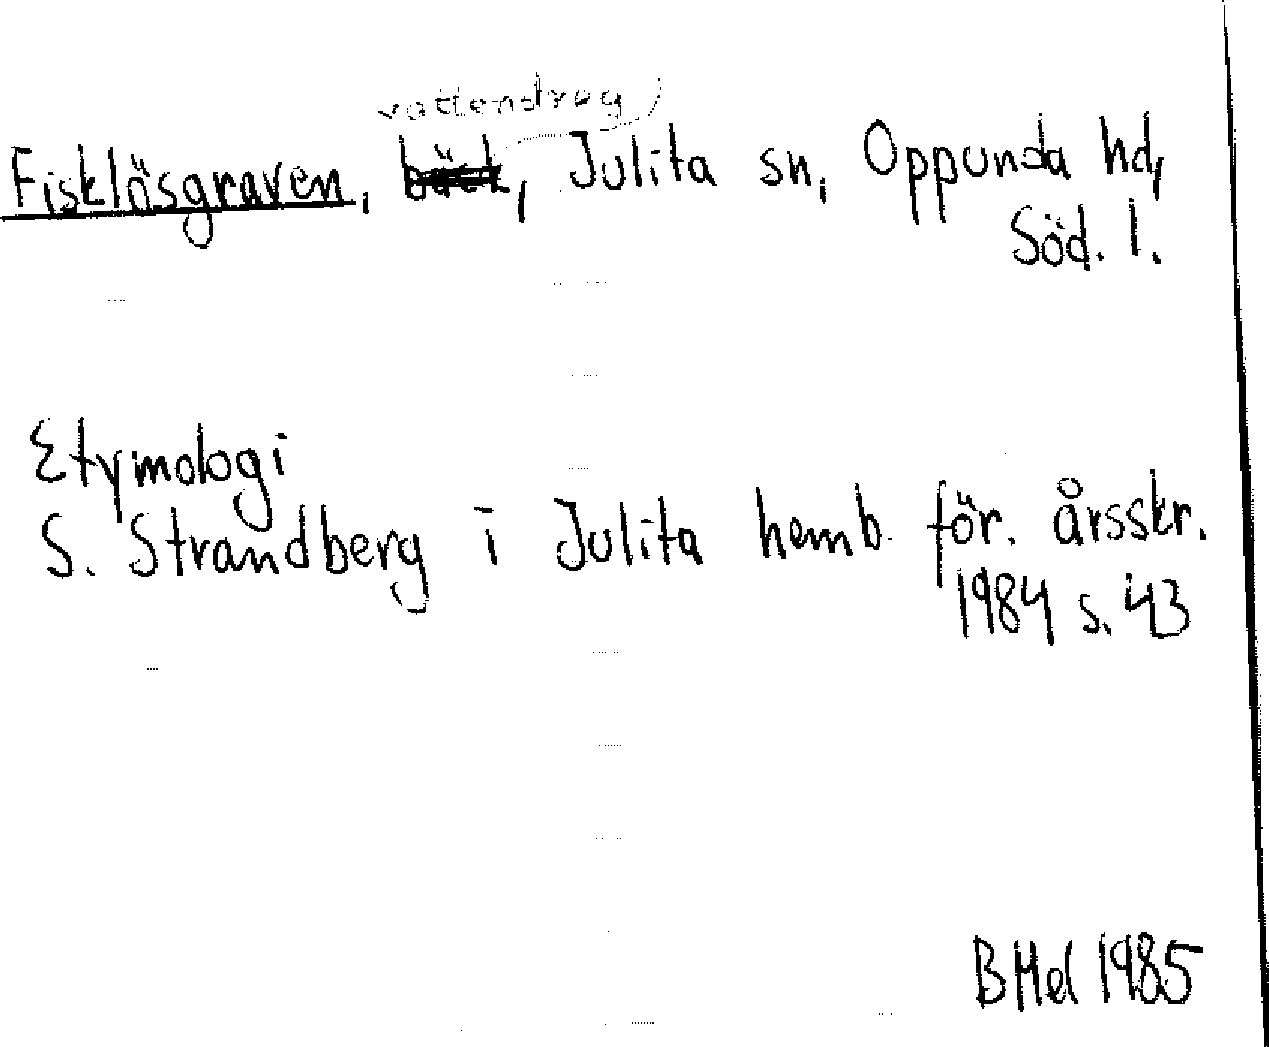 vattendrag
Fisklösgraven, bäck, Julita sn, Oppunda hd,
Söd. l.
Etymologi
S. Strandberg i Julita hemb. för. årsskr.
1984 s. 43
BHel 1985